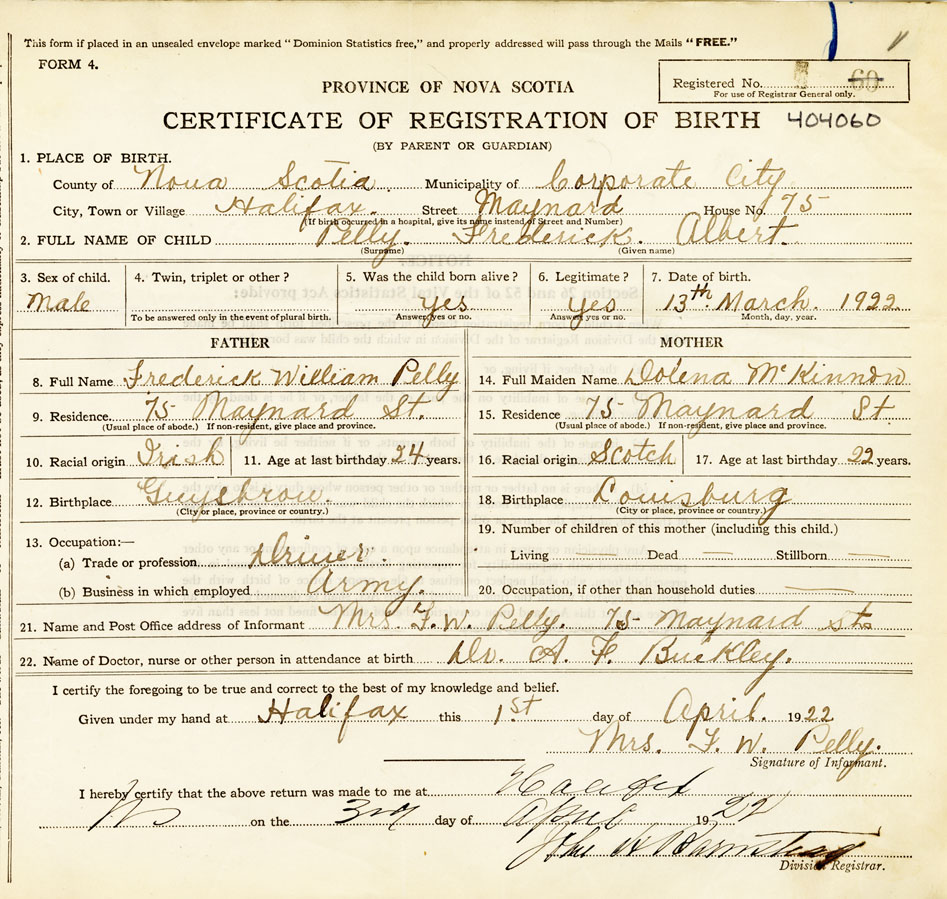 This form if placed in an unsealed envelope marked "Dominion Statistics free," and properly addressed will pass through the Mails "FREE."
FORM 4.
Registered No. 60
For use of Registrar General only.
PROVINCE OF NOVA SCOTIA
CERTIFICATE OF REGISTRATION OF BIRTH 404060
(BY PARENT OR GUARDIAN)
1. PLACE OF BIRTH.
County of Nova Scotia. Municipality of Corporate City
City, Town or Village Halifax. Street Maynard House No. 75
(If birth occurred in a hospital, give its name instead of Street and Number)
2. FULL NAME OF CHILD Pelly. Frederick. Albert.
(Surname) (Given name)
3. Sex of child. 4. Twin, triplet or other? 5. Was the child born alive? 6. Legitimate? 7. Date of birth.
Male yes yes 13th. March. 1922
To be answered only in the event of plural birth. Answer yes or no. Answer yes or no. Month, day, year.
FATHER MOTHER
8. Full Name Frederick William Pelly 14. Full Maiden Name Dolena McKinnon
9. Residence. 75 Maynard St. 15. Residence 75 Maynard St
(Usual place of abode.) If non-resident, give place and province. (Usual place of abode.) If non-resident, give place and province.
10. Racial origin Irish 11. Age at last birthday 24 years. 16. Racial origin Scotch 17. Age at last birthday 22 years.
12. Birthplace Guysbrow. 18. Birthplace Louisburg
(City or place, province or country.) (City or place, province or country.)
13. Occupation:— 19. Number of children of this mother (including this child.)
(a) Trade or profession Driver. Living Dead — Stillborn —
(b) Business in which employed Army. 20. Occupation, if other than household duties —
21. Name and Post Office address of Informant Mrs. F. W. Pelly. 75 Maynard st.
22. Name of Doctor, nurse or other person in attendance at birth Dr. A. F. Buckley.
I certify the foregoing to be true and correct to the best of my knowledge and belief.
Given under my hand at Halifax this 1st day of April. 1922
Mrs. F. W. Pelly.
Signature of Informant.
I hereby certify that the above return was made to me at Halifax
on the 3rd day of April 1922
Division Registrar.